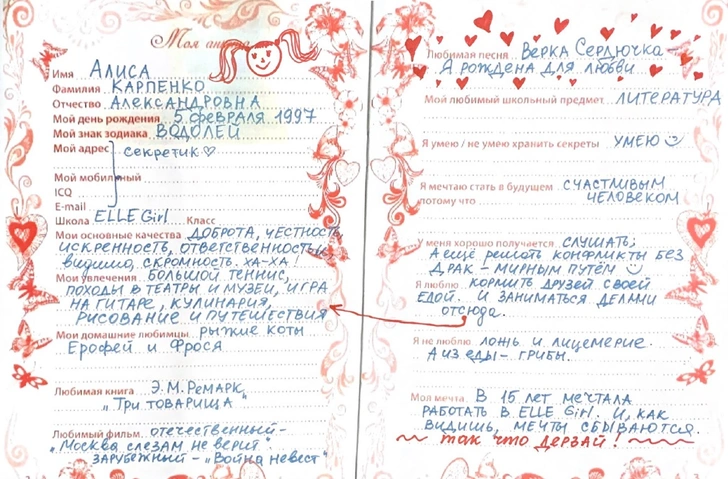 Моя анкета
Имя АЛИСА
Фамилия КАРПЕНКО
Отчество АЛЕКСАНДРОВНА
Мой день рождения 5 февраля 1997
Мой знак зодиака ВОДОЛЕЙ
Мой адрес секретик♡
Мой мобильный
ICQ
E-mail
Школа ELLE Girl Класс
Мои основные качества ДОБРОТА, ЧЕСТНОСТЬ,
ИСКРЕННОСТЬ, ОТВЕТСТВЕННОСТЬ И,
видимо, скромность. ХА-ХА!
Мои увлечения БОЛЬШОЙ ТЕННИС,
ПОХОДЫ В ТЕАТРЫ И МУЗЕИ, ИГРА
НА ГИТАРЕ, КУЛИНАРИЯ,
РИСОВАНИЕ И ПУТЕШЕСТВИЯ
Мои домашние любимцы рыжие коты
Ерофей и Фрося
Любимая книга Э.М. РЕМАРК,
"ТРИ ТОВАРИЩА"
Любимый фильм отечественный-
„Москва слезам не верит".
ЗАРУБЕЖНЫЙ - „Война невест"
Любимая песня ВЕРКА СЕРДЮЧКА
Я РОЖДЕНА ДЛЯ ЛЮБВИ
Мой любимый школьный предмет ЛИТЕРАТУРА
Я умею / не умею хранить секреты УМЕЮ
Я мечтаю стать в будущем СЧАСТЛИВЫМ
потому что ЧЕЛОВЕКОМ
У меня хорошо получается СЛУШАТЬ;
А ещё решать конфликты БЕЗ
ДРАК - МИРНЫМ ПУТЁМ
Я люблю КОРМИТЬ ДРУЗЕЙ СВОЕЙ
ЕДОЙ. И ЗАНИМАТЬСЯ ДЕЛАМИ
ОТСЮДА.
Я не люблю ЛОЖЬ И ЛИЦЕМЕРИЕ.
А ИЗ ЕДЫ - ГРИБЫ.
Моя мечта В 15 ЛЕТ МЕЧТАЛА
РАБОТАТЬ В ELLE Girl. И, КАК
ВИДИШЬ, МЕЧТЫ СБЫВАЮТСЯ.
ТАК ЧТО ДЕРЗАЙ!